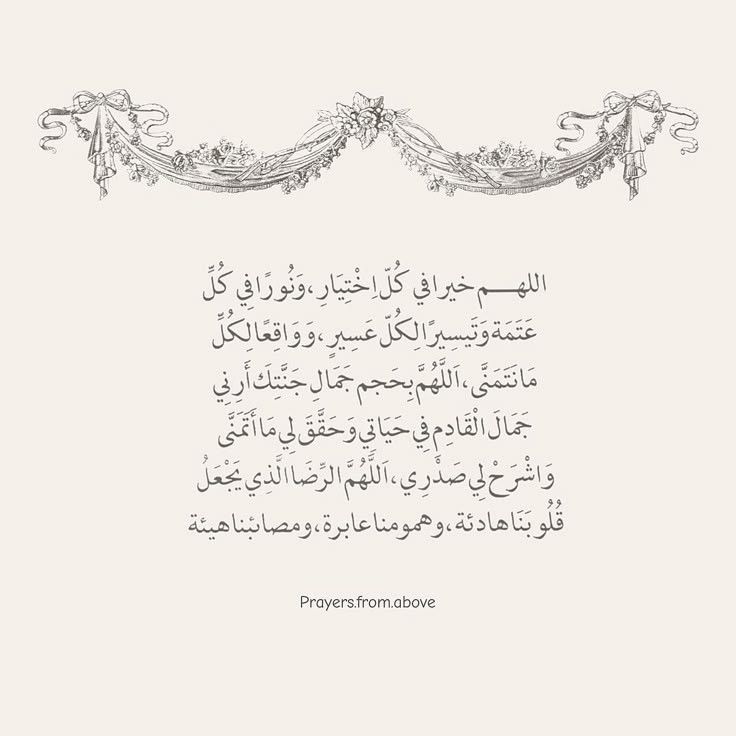 اللهـــم خيرا في كُلّ اِخْتِيَارِ ، وَنُورًا فِي كُلِّ
عَتَمَة وَتَيسِيرًا لِكُلّ عَسِيرٍ ، وَ وَاقِعًا لِكُلِّ
مَا نَتَمَنَّى ، اَللَّهُمَّ بِحَجم جَمَالِ جَنَّتِكَ أَرِنِي
جَمَالَ الْقَادِم فِي حَيَاتِي وَحَقَّقَ لِي مَا أَتَمَنَّى
وَاشْرَحْ لِي صَدْرِي ، اَللَّهُمَّ الرِّضَا الَّذِي يَجْعَلُ
قُلُوبَنَا هادئة ، وهمومنا عابرة ، ومصائبنا هيئة
Prayers.from.above